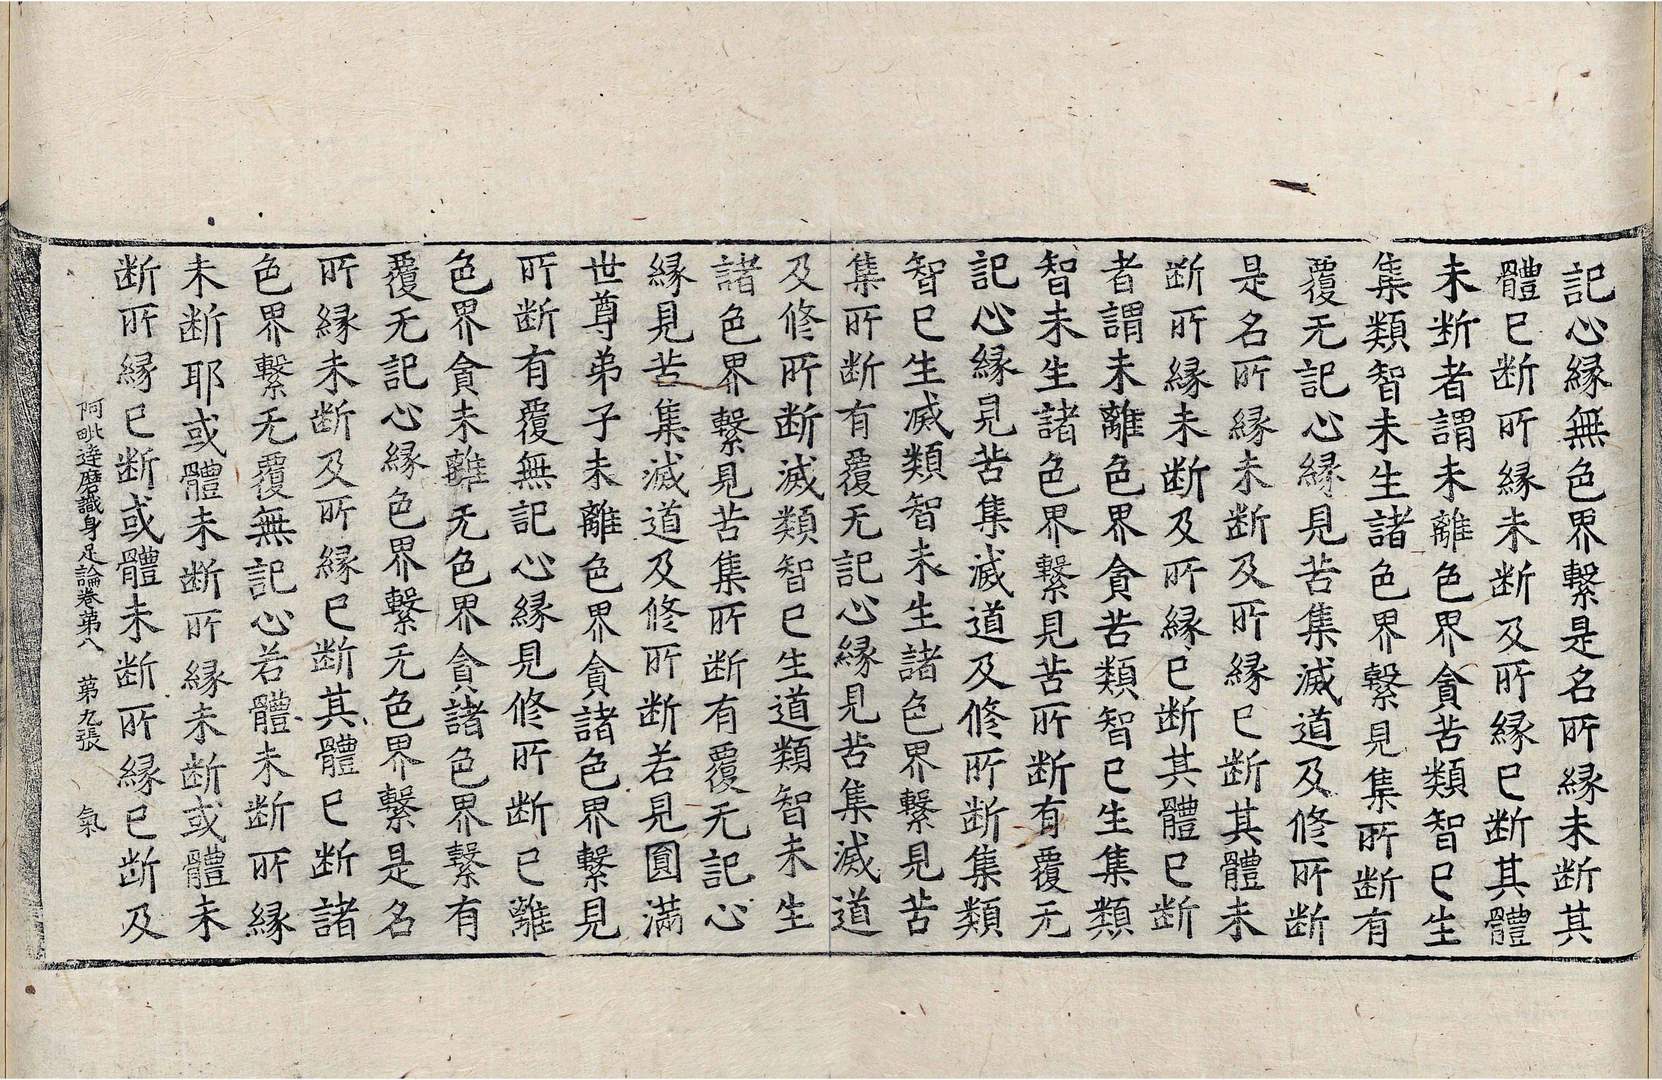 記心縁無色界繫是名所縁未断其
體已断所縁未断及所縁已断其體
未断者謂未離色界貪苦類智已生
集類智未生諸色界繫見集所断有
覆无記心縁見苦集滅道及修所断
是名所縁未断及所縁已断其體未
断所縁未断及所縁已断其體已断
者謂未離色界貪苦類智已生集類
智未生諸色界繫見苦所断有覆无
記心縁見苦集滅道及修所断集類
智已生滅類智未生諸色界繫見苦
集所断有覆无記心縁見苦集滅道
及修所断滅類智已生道類智未生
諸色界繫見苦集所断有覆无記心
縁見苦集滅道及修所断若見圓滿
世尊弟子未離色界貪諸色界繫見
所断有覆無記心縁見修所断已離
色界貪未離无色界貪諸色界繫有
覆无記心縁色界繫无色界繫是名
所縁未断及所縁已断其體已断諸
色界繫无覆無記心若體未断所縁
未断耶或體未断所縁未断或體未
断所縁已断或體未断所縁已断及
阿毗達磨識身足論卷第八　第九張　氣